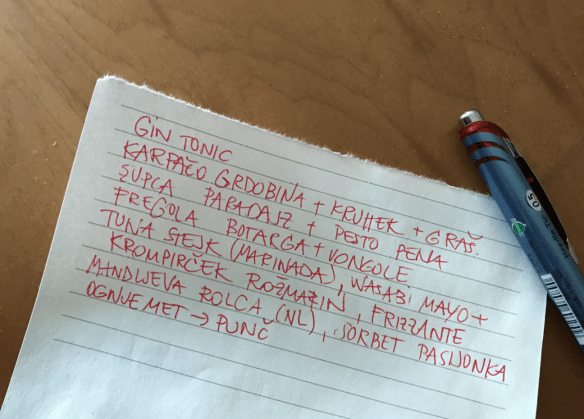 GIN TONIC
KARPAČO GRDOBINA + KRUHEK + GRAŠ.
SUPCA PARADAJZ + PESTO PENA
FREGOLA BOTARGA + VONGOLE
TUNA STEJK (MARINADA), WASABI MAYO +
KROMPIRČEK ROZMARIN, FRIZZANTE
MANDLJEVA ROLCA (NL), SORBET PASIJONKA
OGNJEMET → PUNČ
0.5